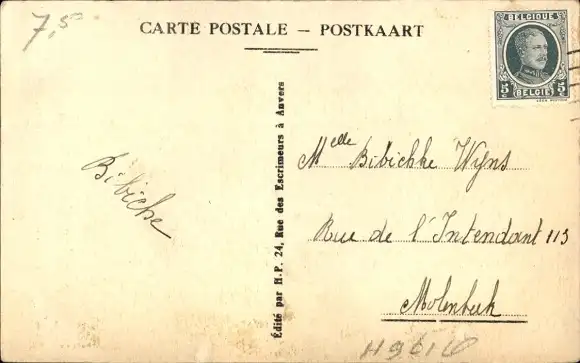 7,50
CARTE POSTALE – POSTKAART
BELGIQUE
5 5
BELGIË
Edité par H.P. 24, Rue des Escrimeurs à Anvers
Bibiche
Melle Bibichke Wyns
Rue de l'Intendant 113
Molenbeek